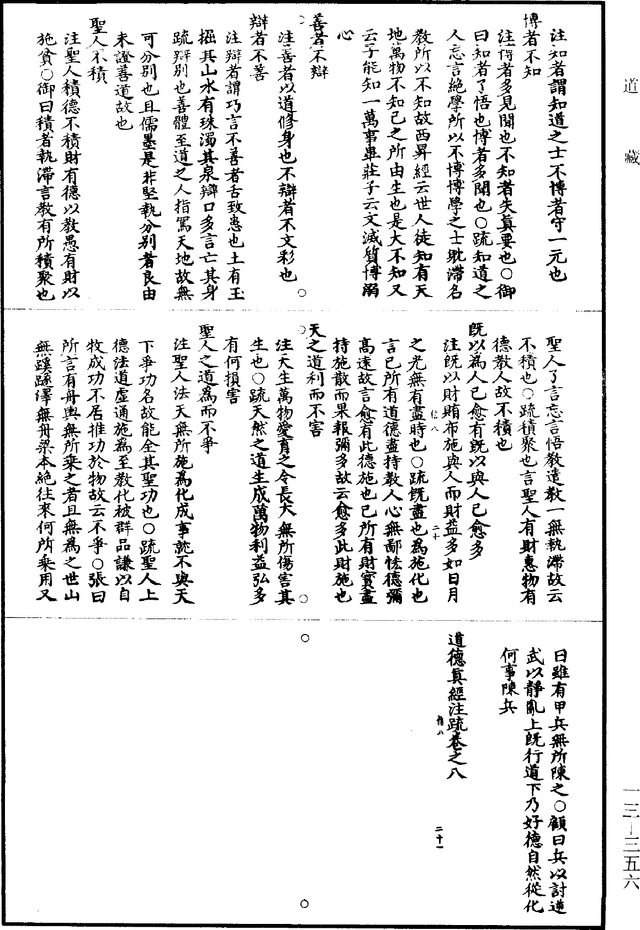 道藏
注知者謂知道之士不博者守一元也
博者不知
注博者多見聞也不知者失真要也○御
曰知者了悟也博者多聞也○疏知道之
人忘言絕學所以不博博學之士耽滯名
教所以不知故西昇經云世人徒知有天
地萬物不知己之所由生也是大不知又
云子能知一萬事畢莊子云文滅質博溺
心
善者不辯
注善者以道修身也不辯者不文彩也
辯者不善
注辯者謂巧言不善者舌致患也土有玉
掘其山水有珠濁其泉辯口多言亡其身
疏辯別也善體至道之人指罵天地故無
可分別也且儒墨是非堅執分別者良由
未證善道故也
聖人不積
注聖人積德不積財有德以教愚有財以
施貧○御曰積者執滯言教有所積聚也
聖人了言忘言悟教遣教一無執滯故云
不積也○疏積聚也言聖人有財惠物有
德教人故不積也
既以為人己愈有既以與人己愈多
注既以財賄布施與人而財益多如日月
之光無有盡時也○疏既盡也為施化也
言己所有道德盡持教人心無鄙悋德彌
高遠故言愈有此德施也己所有財寶盡
持施散而果報彌多故云愈多此財施也
天之道利而不害
注天生萬物愛育之令長大無所傷害其
生也○疏天然之道生成萬物利益弘多
有何損害
聖人之道為而不爭
注聖人法天無所施為化成事就不與天
下爭功名故能全其聖功也○疏聖人上
德法道虛通施為至教化被群品謙以自
牧成功不居推功於物故云不爭○張曰
所言有舟輿無所乘之者且無為之世山
無蹊隧澤無舟梁本絕往來何所乘用又
曰雖有甲兵無所陳之○顧曰兵以討逆
武以靜亂上既行道下乃好德自然從化
何事陳兵
道德真經注疏卷之八
二十
二十一
一三―三五六